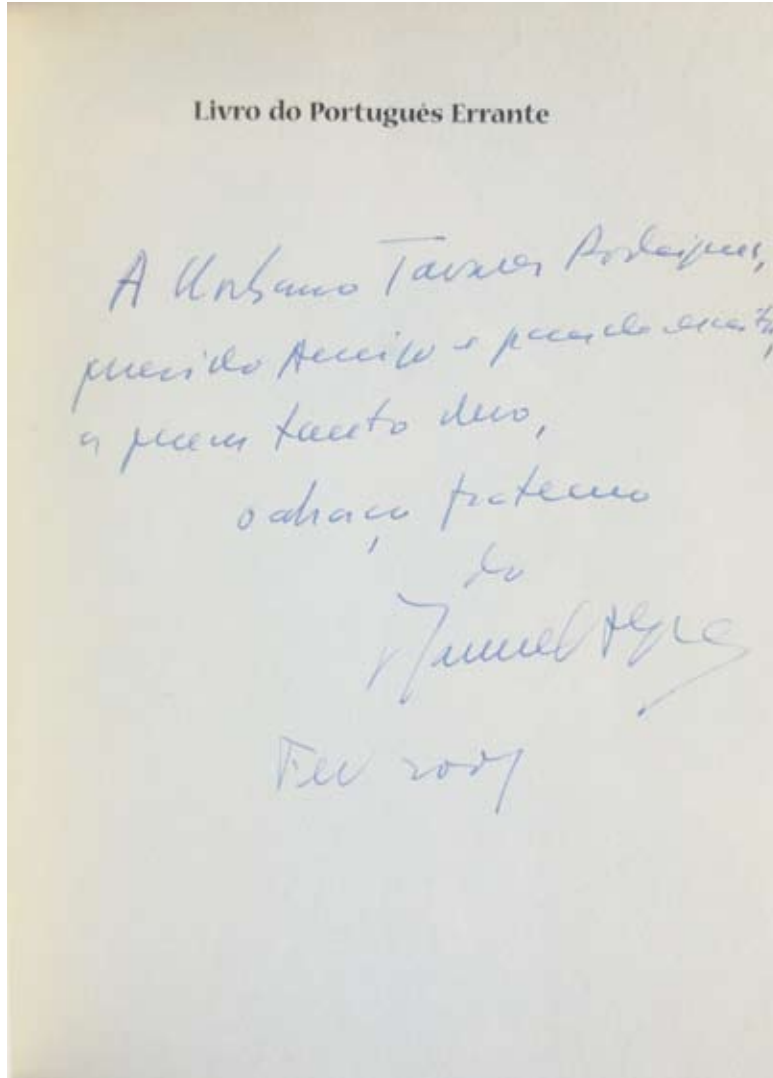 Livro do Português Errante
A Urbano Tavares Rodrigues,
querido Amigo e grande escritor,
a quem tanto devo,
o abraço fraterno
do
Manuel Alegre
Fev 2001